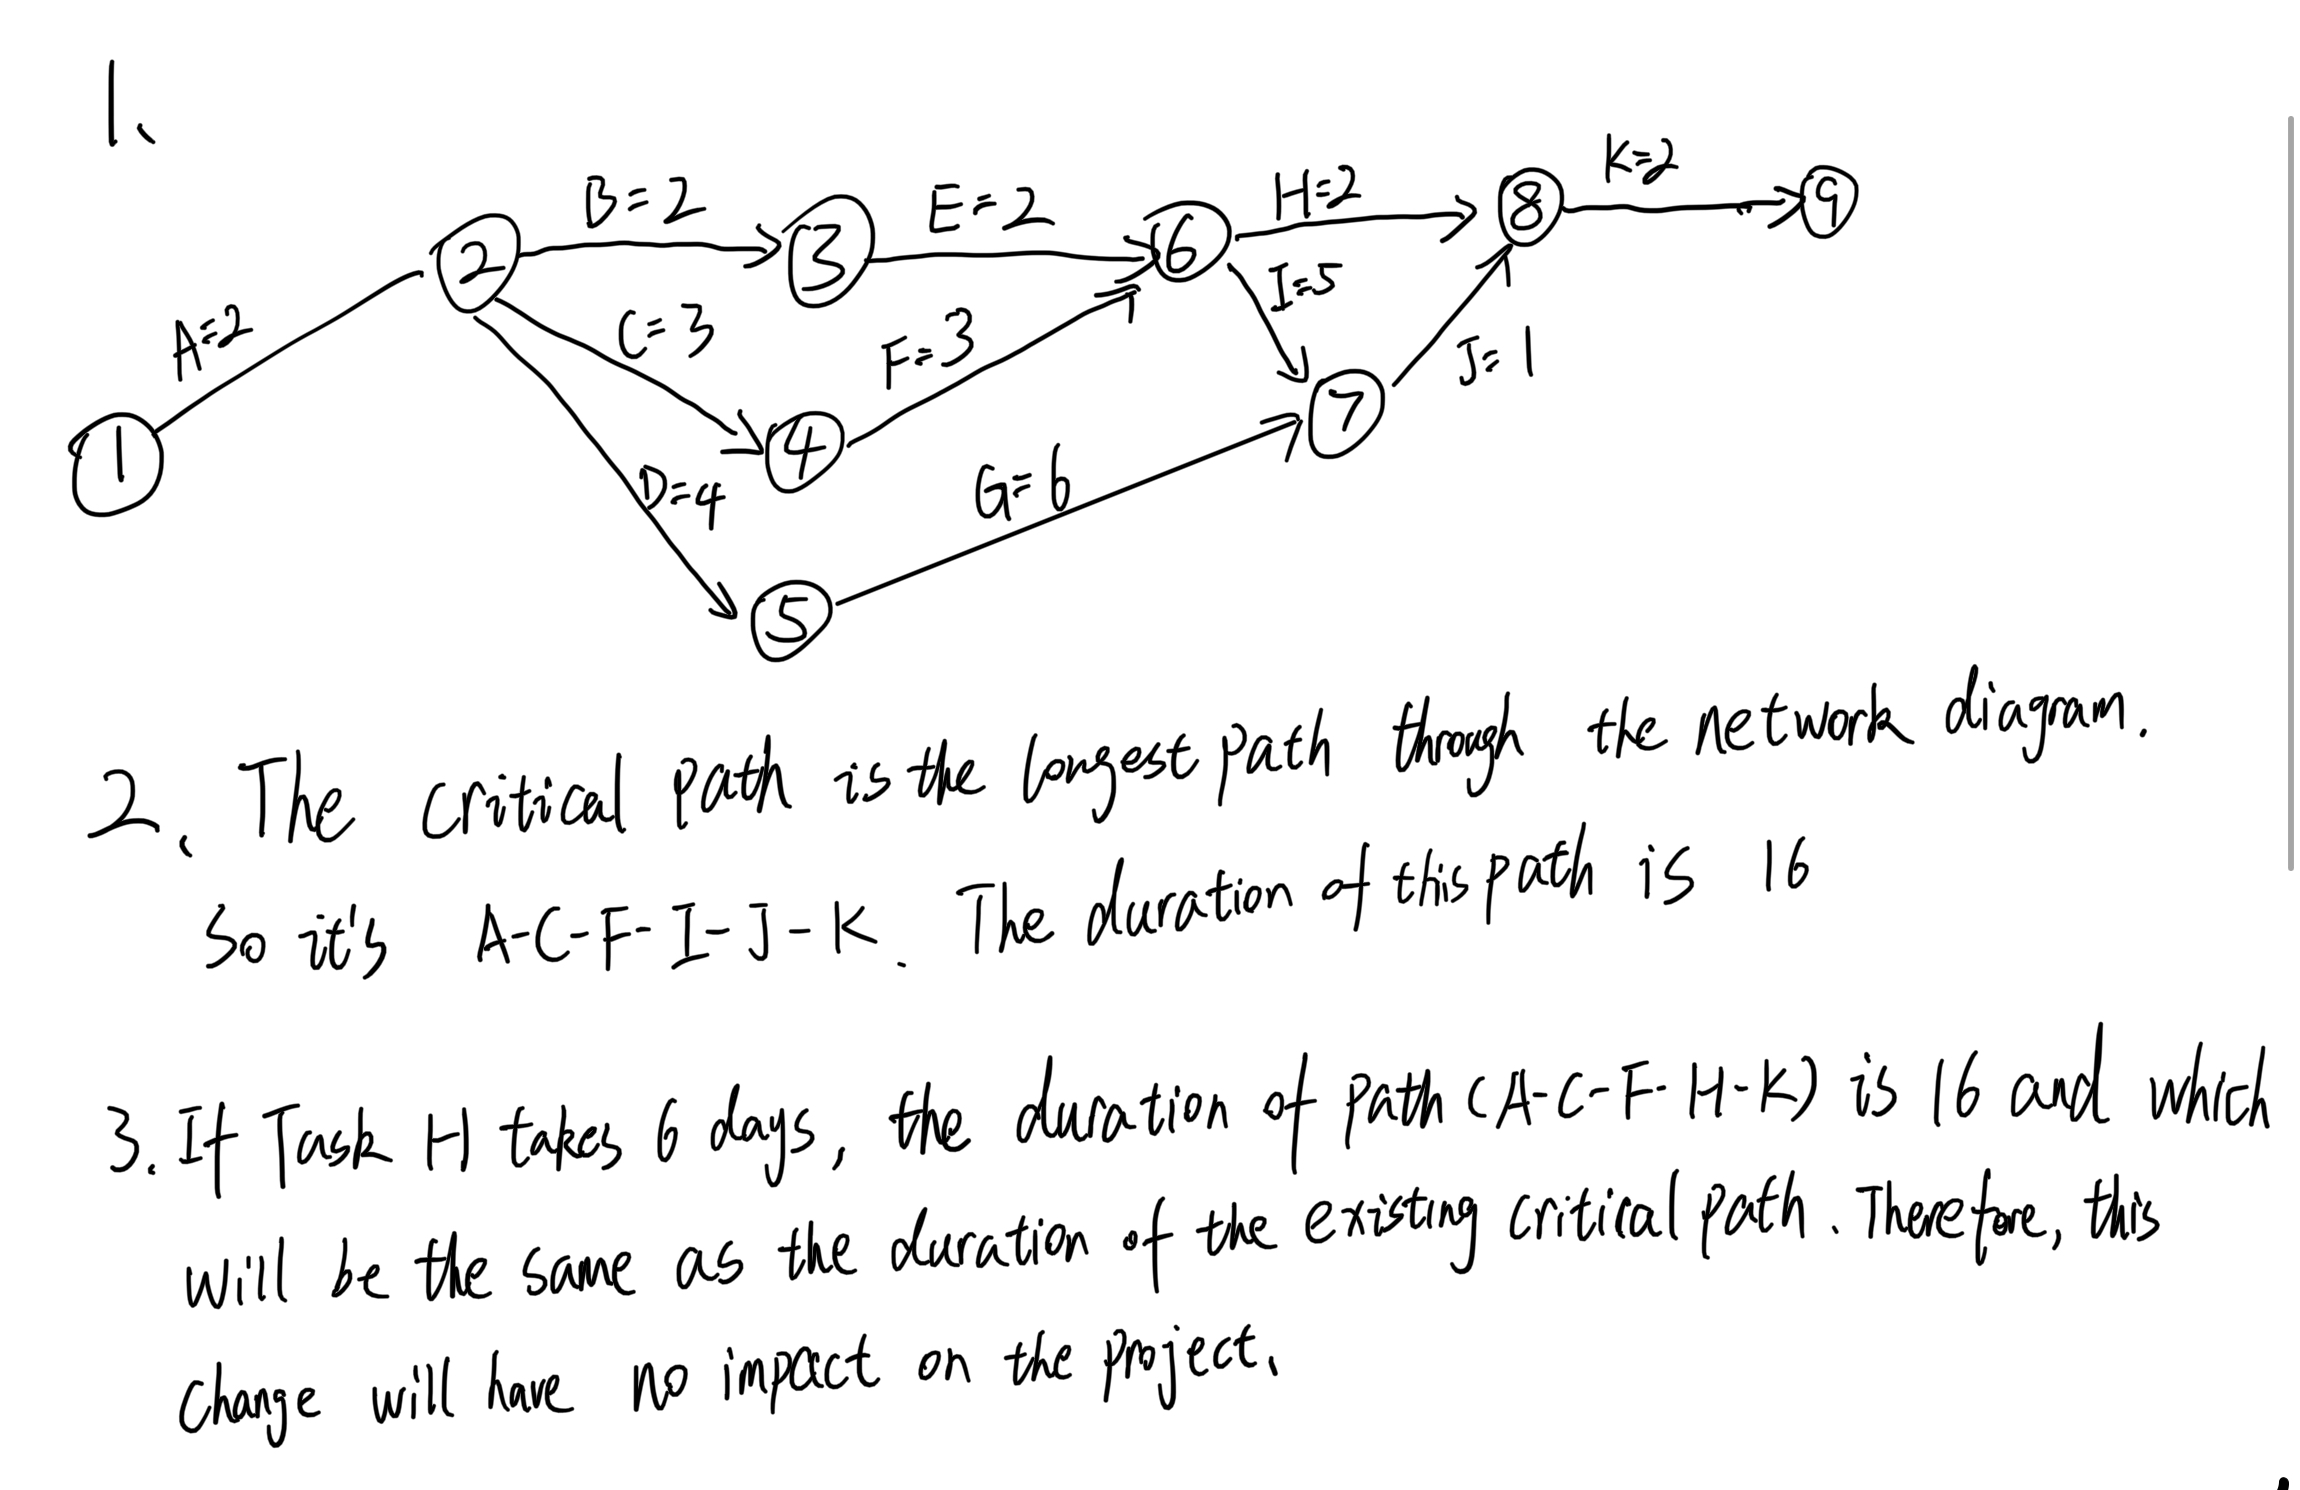 1、
B=2
E=2
H=2
K=2
A=2
C=3
F=3
I=5
J=1
D=4
G=6
1
2
3
4
5
6
7
8
9
2、The critical path is the longest path through the network diagram.
So it's A-C-F-I-J-K. The duration of this path is 16
3.If Task H takes 6 days, the duration of path (A-C-F-H-K) is 16 and which
will be the same as the duration of the existing critical path. Therefore, this
change will have no impact on the project.